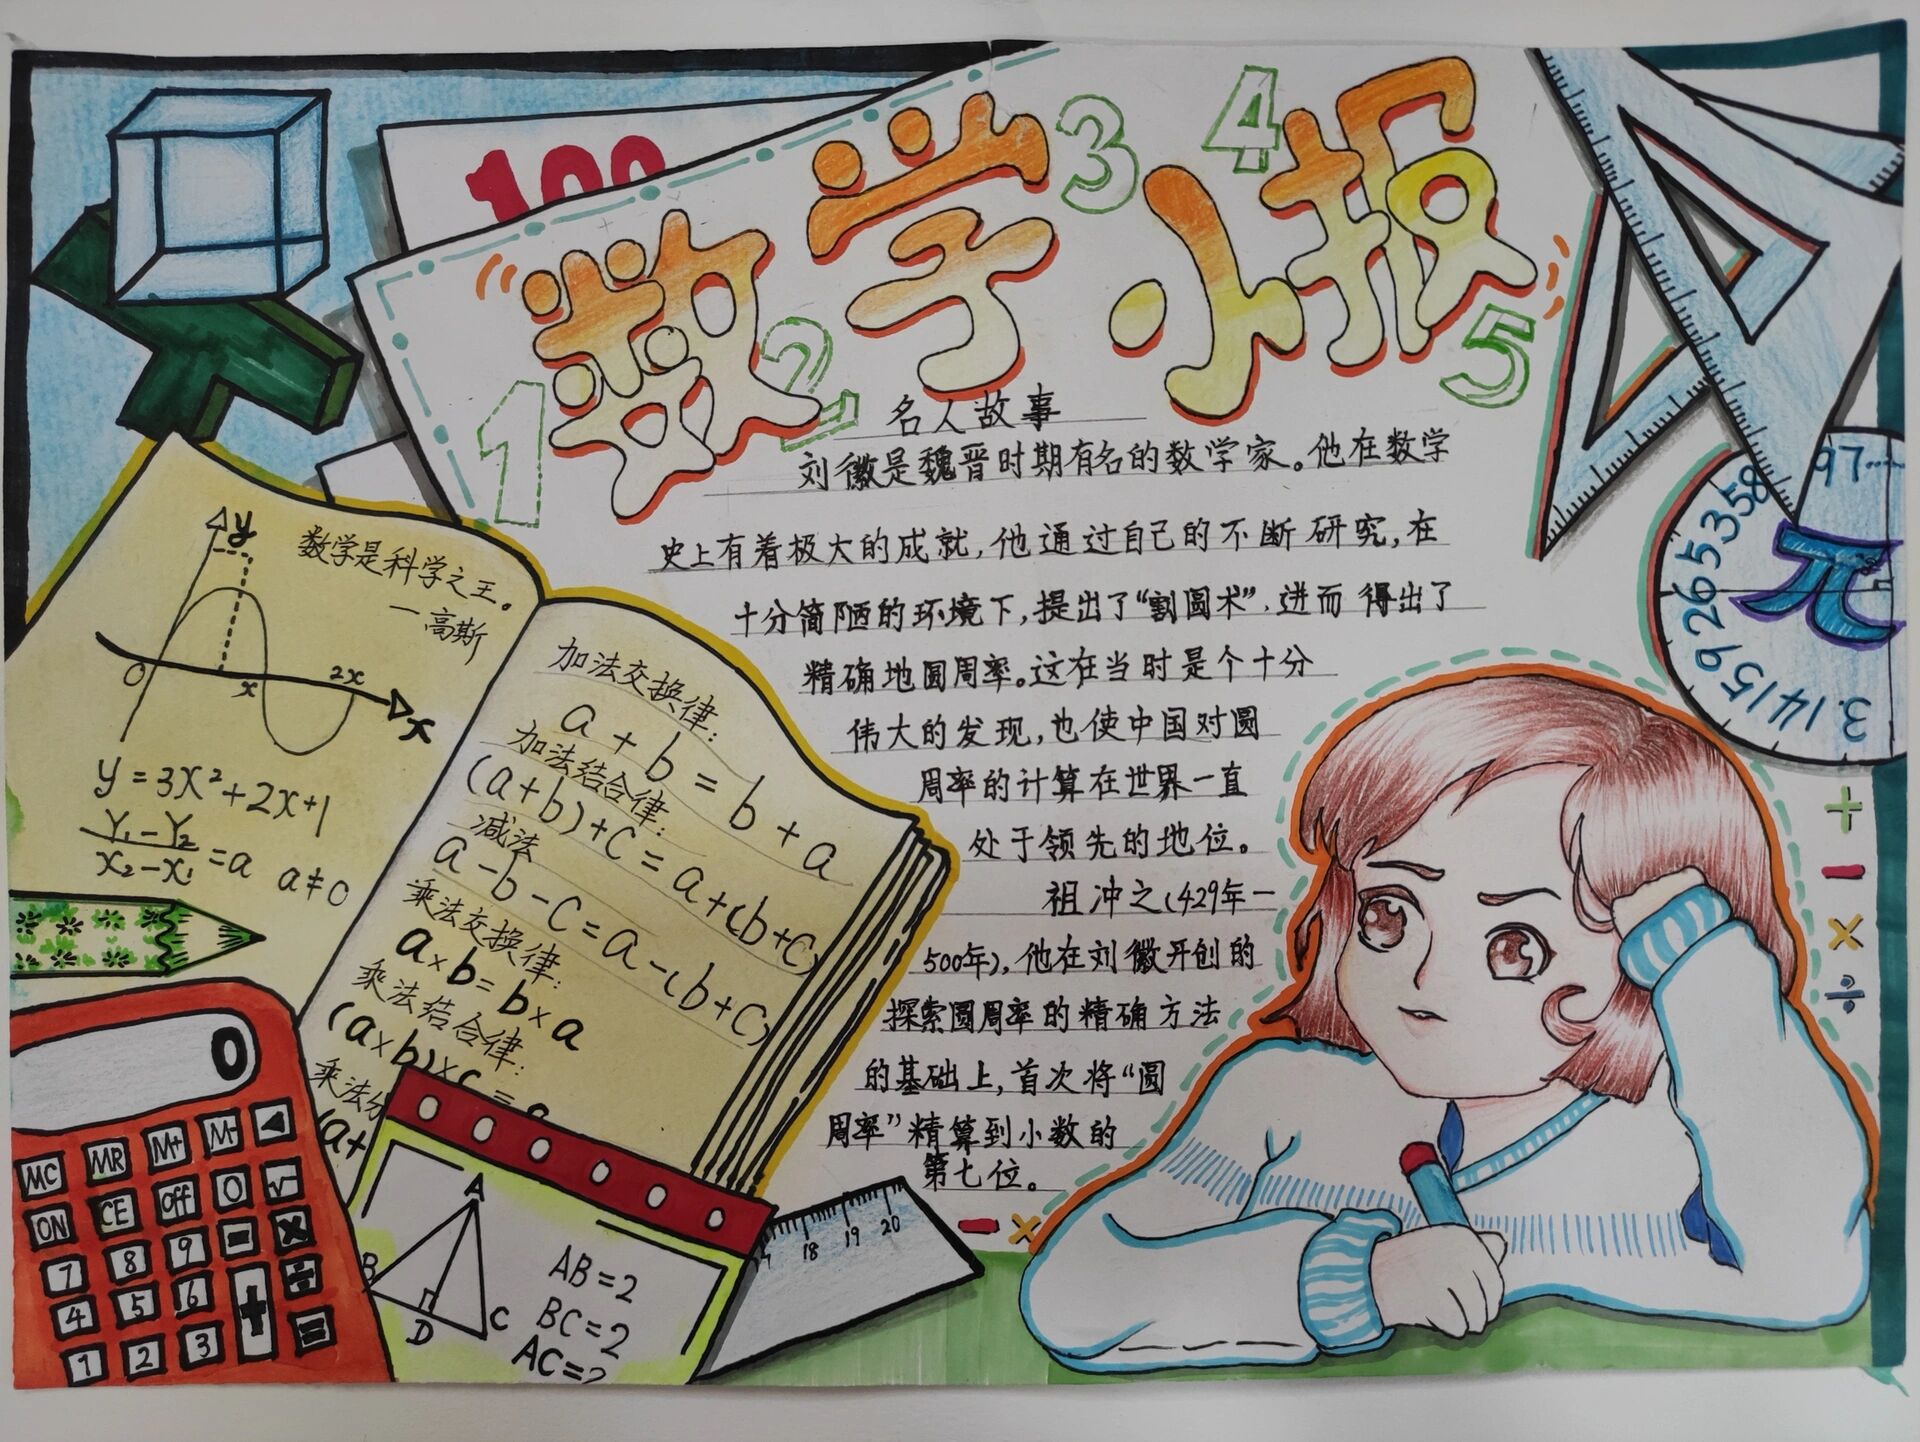 100
数学小报
1
2
3
4
5
名人故事
刘徽是魏晋时期有名的数学家。他在数学
史上有着极大的成就,他通过自己的不断研究,在
十分简陋的环境下,提出了“割圆术”,进而得出了
精确地圆周率。这在当时是个十分
伟大的发现,也使中国对圆
周率的计算在世界一直
处于领先的地位。
祖冲之(429年一
500年),他在刘徽开创的
探索圆周率的精确方法
的基础上,首次将“圆
周率”精算到小数的
第七位。
y
数学是科学之王。
一高斯
0
x
2x
x
y=3x²+2x+1
Y₁-Y₂
x₂-x₁ =a a≠0
加法交换律:
a+b=b+a
加法结合律:
(a+b)+c=a+(b+c)
减法
a-b-c=a-(b+c)
乘法交换律:
a×b=b×a
乘法结合律:
(a×b)×c=
乘法分
(a+
0
MC MR M+ M- ◀
ON CE off 0 √
7 8 9 = ×
4 5 6 + ÷
1 2 3 =
A
B
D
C
AB=2
BC=2
AC=?
18 19 20
π
3.14159265358
97……
+
-
×
÷
- ×